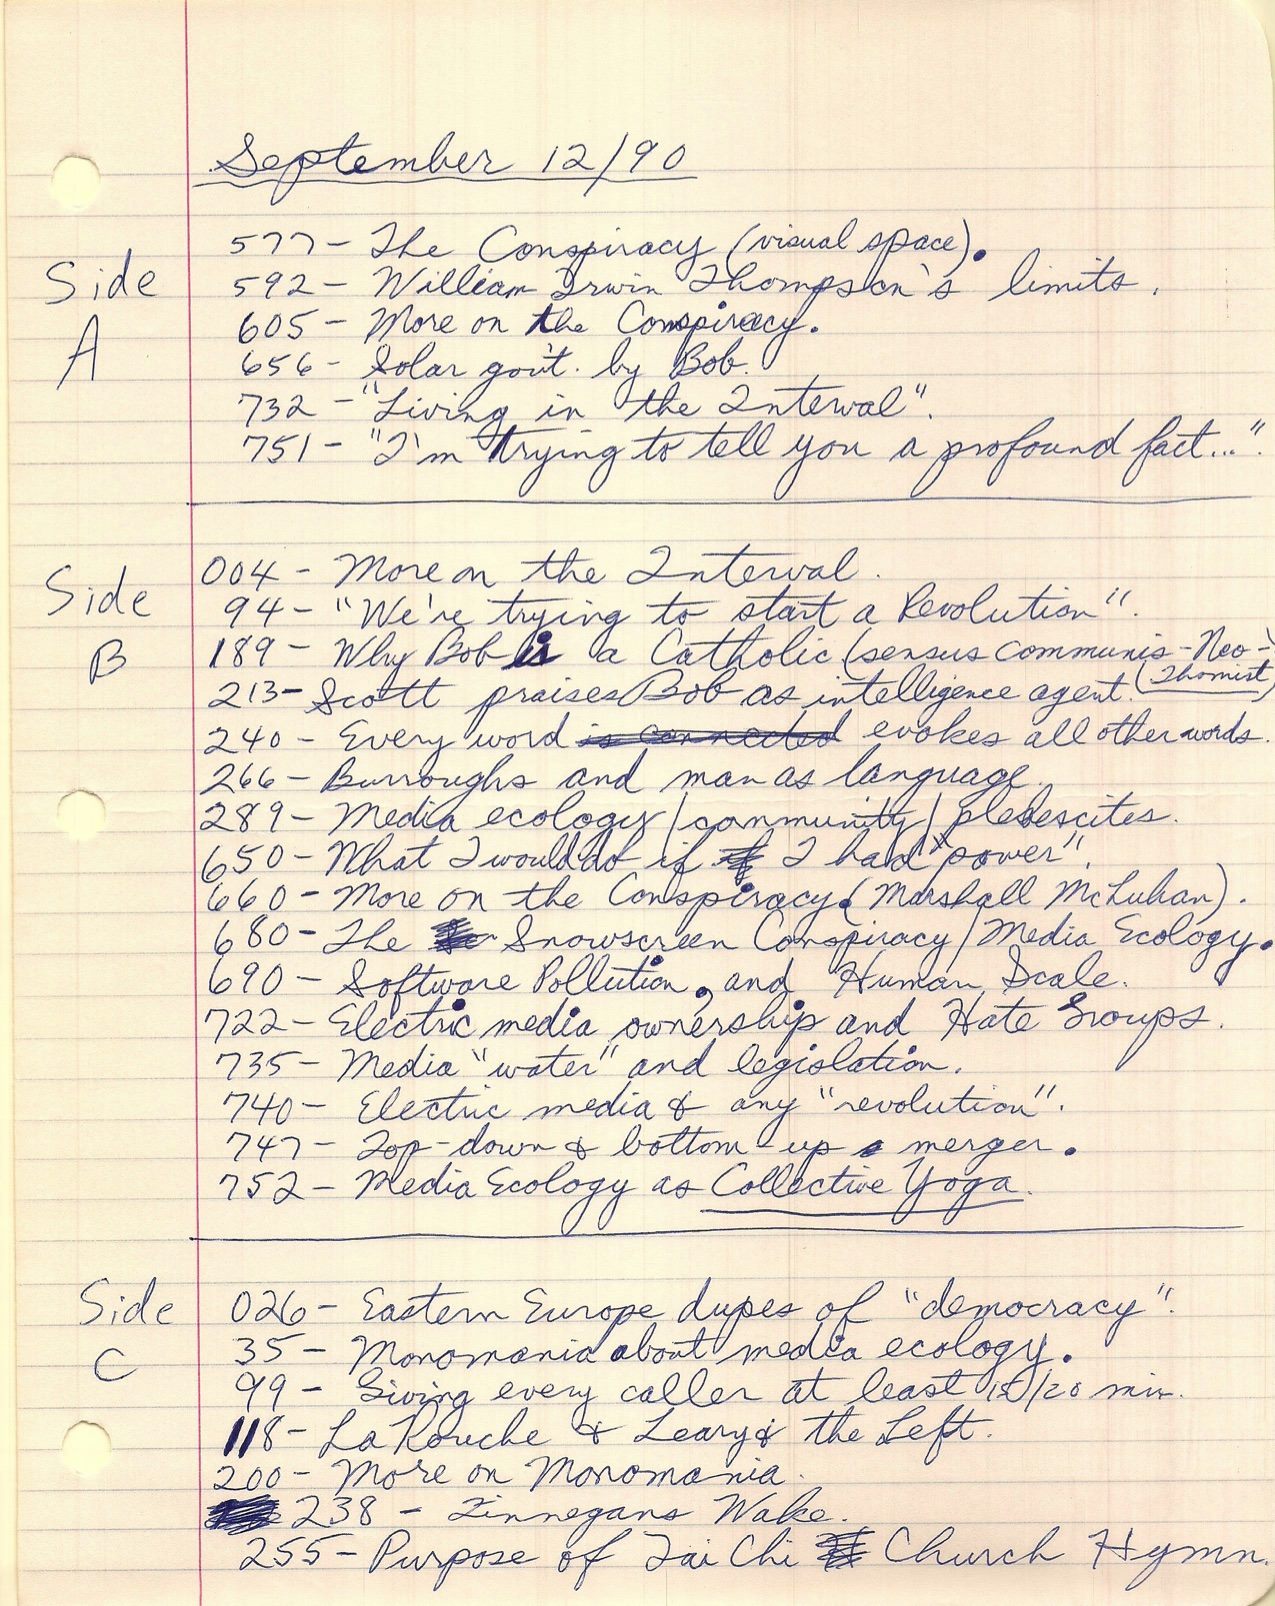 September 12/90
Side A
577 - The Conspiracy (visual space).
592 - William Irwin Thompson's limits.
605 - More on the Conspiracy.
656 - Solar gov't. by Bob.
732 - "Living in the Interval".
751 - "I'm trying to tell you a profound fact...".
Side B
004 - More on the Interval.
94 - "We're trying to start a Revolution".
189 - Why Bob is a Catholic (sensus communis - Neo-Thomist)
213 - Scott praises Bob as intelligence agent.
240 - Every word is connected evokes all other words.
266 - Burroughs and man as language.
289 - Media ecology/community/plebescites.
650 - What I would do if I had "power".
660 - More on the Conspiracy (Marshall McLuhan).
680 - The Snowscreen Conspiracy/Media Ecology.
690 - Software Pollution, and Human Scale.
722 - Electric media ownership and Hate Groups.
735 - Media "water" and legislation.
740 - Electric media & any "revolution".
747 - Top-down & bottom-up merger.
752 - Media Ecology as Collective Yoga.
Side C
026 - Eastern Europe dupes of "democracy".
35 - Monomania about media ecology.
99 - Giving every caller at least 15/20 min.
118 - LaRouche & Leary & the Left.
200 - More on Monomania.
238 - Finnegans Wake.
255 - Purpose of Tai Chi Church Hymn.